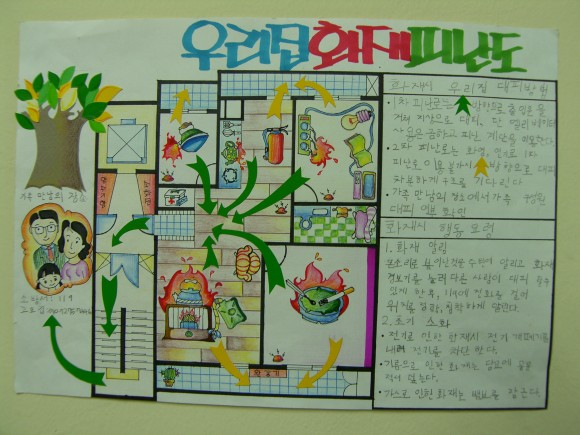 우리집화재피난도
화재시 우리집 대피방법
• 1차 피난로는 방향으로 출입문을
거쳐 지상으로 대피, 단 엘리베이터
사용은 금하고 피난 계단을 이용한다.
• 2차 피난로는 화염, 연기로 1차
피난로 이용 불가시 방향으로 대피
자보하게 구조를 기다린다
• 가족 만남의 장소에서 가족
대피 여부 확인
화재시 행동 요령
1. 화재 알림
경보기를 눌러 다른 사람이 대피 할수
있게 한 후, 119에 전화를 걸어
위치를 침착하게 말한다.
2. 초기 소화
• 전기로 인한 화재시 전기
내려 전기를 차단 한다.
• 기름으로 인한 화재는 담요에 물을
적셔 덮는다.
• 가스로 인한 화재는 밸브를 잠근다.
가족 만남의 장소
소방서: 119
소화기